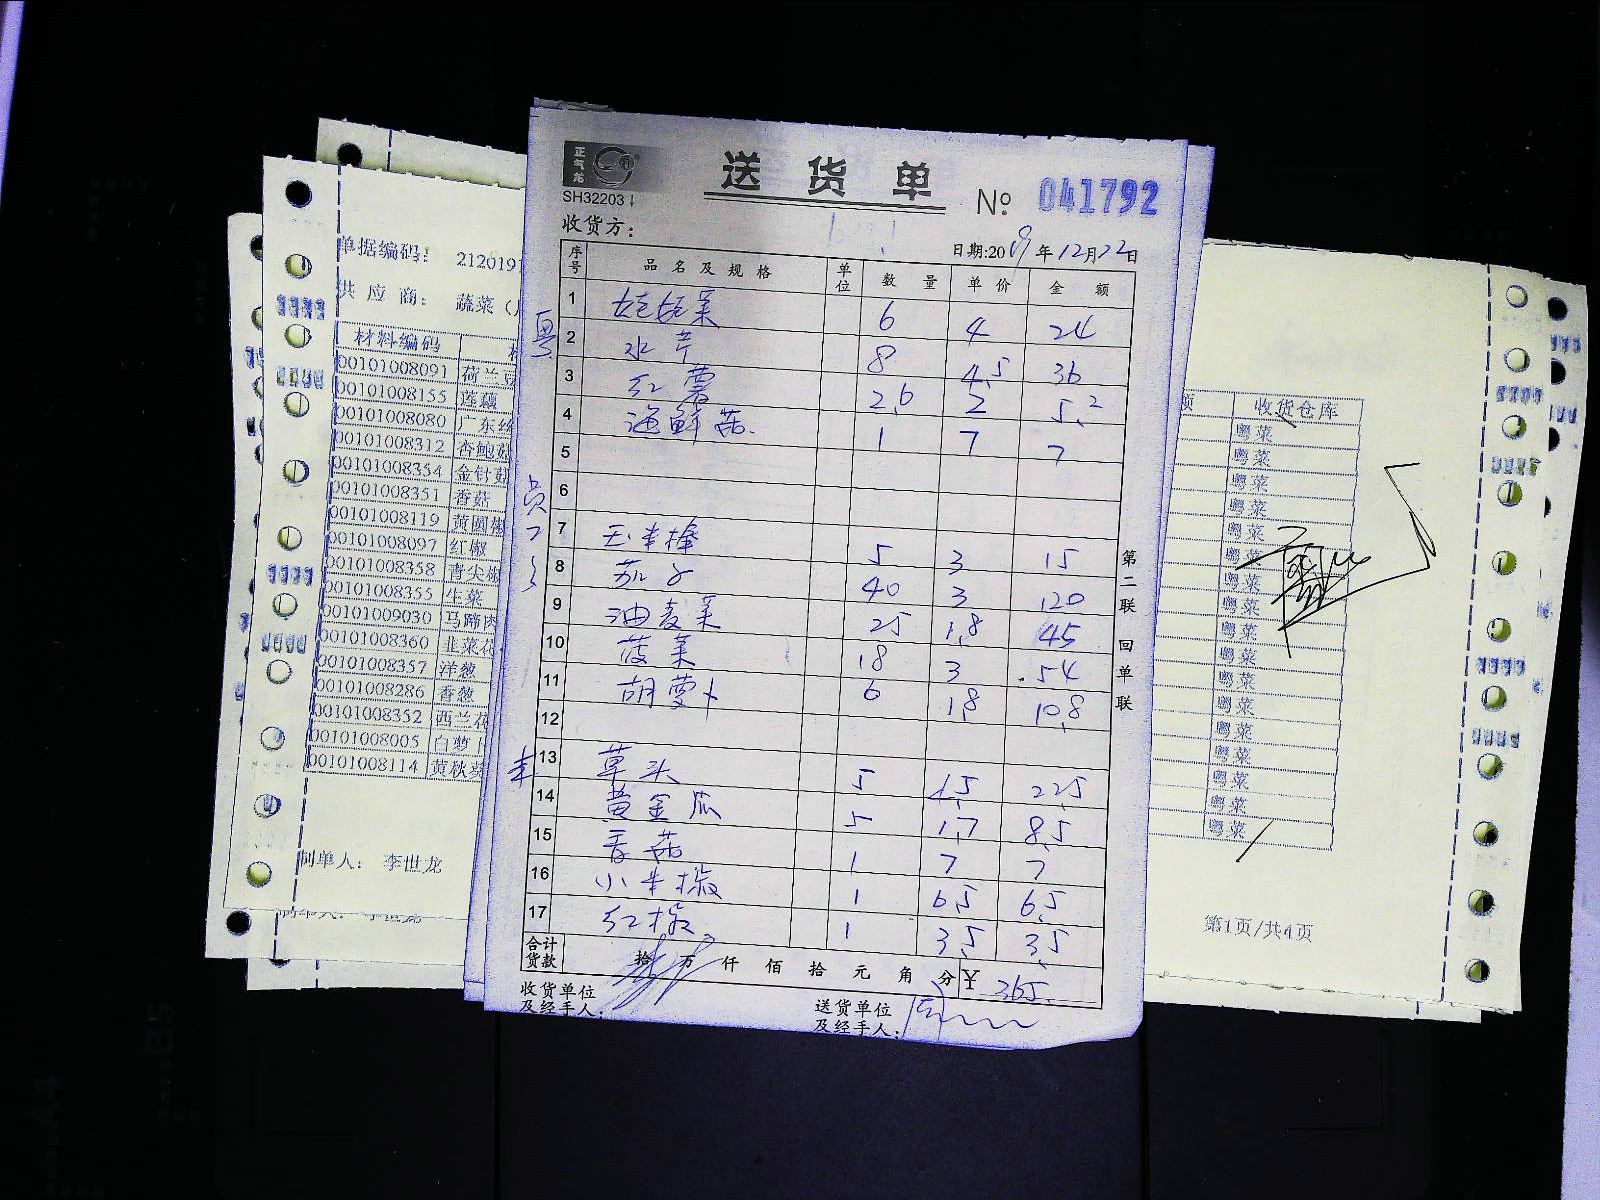 正气龙
SH32203
送货单 № 041792
收货方:
日期:2019年12月22日
序号 品名及规格 单位 数量 单价 金额
粤
1 娃娃菜 6 4 24
2 水芹 8 4.5 36
3 红薯 2.6 2 5.2
4 海鲜菇. 1 7 7
5
6
员
7 玉米棒 5 3 15
8 茄子 40 3 120
9 油麦菜 25 1.8 45
10 菠菜 18 3 54
11 胡萝卜 6 1.8 10.8
12
13 草头 5 4.5 22.5
14 黄金瓜 5 1.7 8.5
15 香菇 1 7 7
16 小米椒 1 6.5 6.5
17 红椒 1 3.5 3.5
合计货款 拾万仟佰拾元角分 ¥ 365.
收货单位及经手人:
送货单位及经手人:
第二联 回单联
单据编码: 2120191
供应商: 蔬菜(
材料编码
00101008091 荷兰豆
00101008155 莲藕
00101008080 广东
00101008312 杏鲍菇
00101008354 金针菇
00101008351 香菇
00101008119 黄圆椒
00101008097 红椒
00101008358 青尖椒
00101008355 生菜
00101009030 马蹄肉
00101008360 韭菜花
00101008357 洋葱
00101008286 香葱
00101008352 西兰花
00101008005 白萝卜
00101008114 黄秋葵
制单人: 李世龙
制单人: 李世龙
额 收货仓库
粤菜
粤菜
粤菜
粤菜
粤菜
粤菜
粤菜
粤菜
粤菜
粤菜
粤菜
粤菜
粤菜
粤菜
粤菜
粤菜
粤菜
第1页/共4页